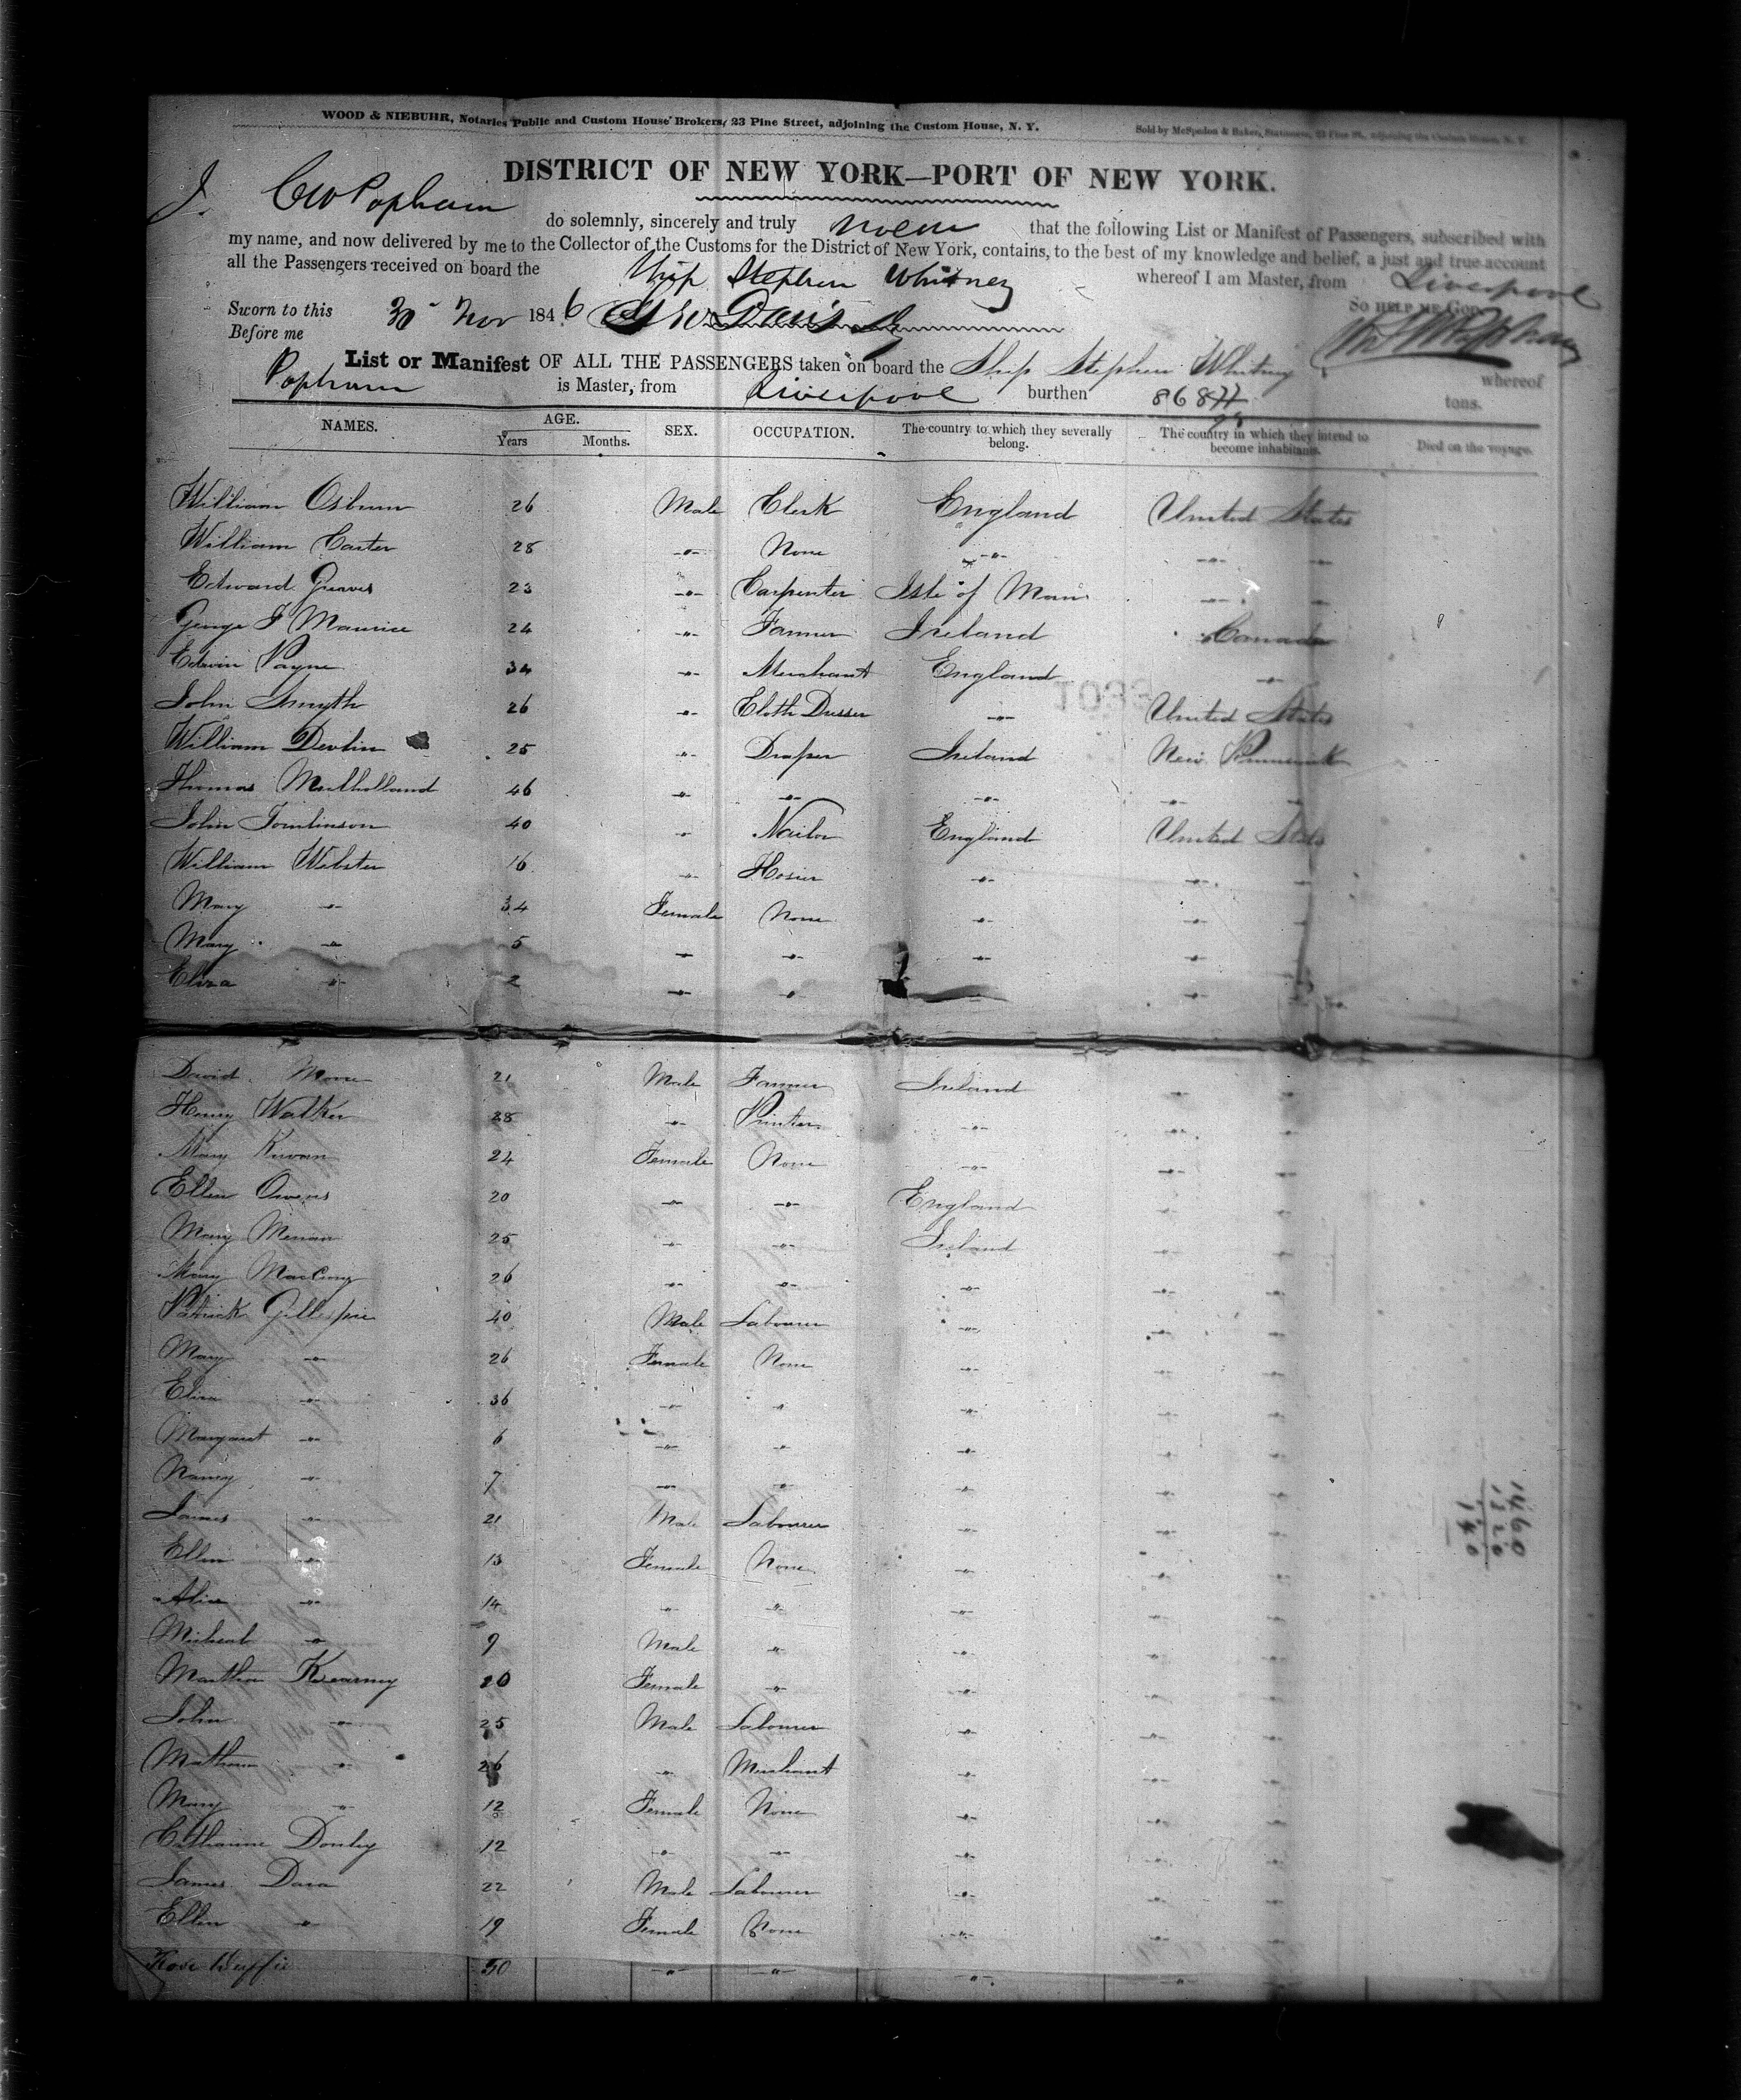 WOOD & NIEBUHR, Notaries Public and Custom House Brokers, 23 Pine Street, adjoining the Custom House, N. Y.
Sold by McSpedon & Baker, Stationers, 25 Pine St., adjoining the Custom House, N. Y.
DISTRICT OF NEW YORK—PORT OF NEW YORK.
I. CW Popham do solemnly, sincerely and truly swear that the following List or Manifest of Passengers, subscribed with
my name, and now delivered by me to the Collector of the Customs for the District of New York, contains, to the best of my knowledge and belief, a just and true account
all the Passengers received on board the Ship Stephen Whitney whereof I am Master, from Liverpool
Sworn to this 30 Nov 1846 SO HELP ME GOD.
Before me
List or Manifest OF ALL THE PASSENGERS taken on board the Ship Stephen Whitney whereof
Popham is Master, from Liverpool burthen 868 tons.
NAMES. AGE. Years Months. SEX. OCCUPATION. The country to which they severally belong. The country in which they intend to become inhabitants. Died on the voyage.
William Osburn 26 Male Clerk England United States
William Carter 28 -"- None -"- -"- -"-
Edward Greaves 23 -"- Carpenter Isle of Man -"- -"-
George F Maurice 24 -"- Farmer Ireland Canada
Edwin Payne 34 -"- Merchant England -"-
John Smyth 26 -"- Cloth Dresser -"- United States
William Devlin 25 -"- Draper Ireland New Brunswick
Thomas Mulholland 46 -"- -"- -"- -"- -"-
John Tomlinson 40 -"- Nailor England United States
William Webster 16 -"- Hosier -"- -"- -"-
Mary -"- 34 Female None -"- -"- -"-
Mary -"- 5 -"- -"- -"- -"- -"-
Eliza -"- 2 -"- -"- -"- -"-
David Moore 21 Male Farmer Ireland -"- -"-
Henry Walker 28 -"- Printer -"- -"- -"-
Mary Kirwan 24 Female None -"- -"- -"-
Ellen Owens 20 -"- -"- England -"- -"-
Mary 25 -"- -"- Ireland -"- -"-
Mary 26 -"- -"- -"- -"- -"-
Patrick Gillespie 40 Male Labourer -"- -"- -"-
Mary -"- 26 Female None -"- -"- -"-
Eliza -"- 36 -"- -"- -"- -"- -"-
Margaret -"- 6 -"- -"- -"- -"- -"-
Nancy -"- 7 -"- -"- -"- -"- -"-
James -"- 21 Male Labourer -"- -"- -"-
Ellen -"- 13 Female None -"- -"- -"-
Alice -"- 14 -"- -"- -"- -"- -"-
Micheal -"- 9 Male -"- -"- -"- -"-
Martha Kearney 20 Female -"- -"- -"- -"-
John -"- 25 Male Labourer -"- -"- -"-
Mathew -"- 26 -"- Merchant -"- -"- -"-
Mary -"- 12 Female None -"- -"- -"-
Catharine 12 -"- -"- -"- -"- -"-
James Dara 22 Male Labourer -"- -"- -"-
Ellen -"- 19 Female None -"- -"- -"-
Rose Duffie 30 -"- -"- -"- -"- -"-
1460
1320
140